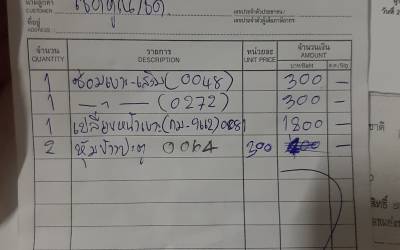 นามลูกค้า
CUSTOMER
เลขประจำตัวประชาชน/
ที่อยู่
ADDRESS
เลขประจำตัวผู้เสียภาษีอากร
จำนวน รายการ หน่วยละ จำนวนเงิน
QUANTITY DESCRIPTION UNIT PRICE AMOUNT
บาท/Baht ส.ต./Stg
1 ซ่อมเบาะ-เสริม (0048) 300 -
1 -"- (0272) 300 -
1 เปลี่ยนหน้าเบาะ (กม-9612) 0081 1800 -
2 หุ้มข้างประตู 0064 300 -